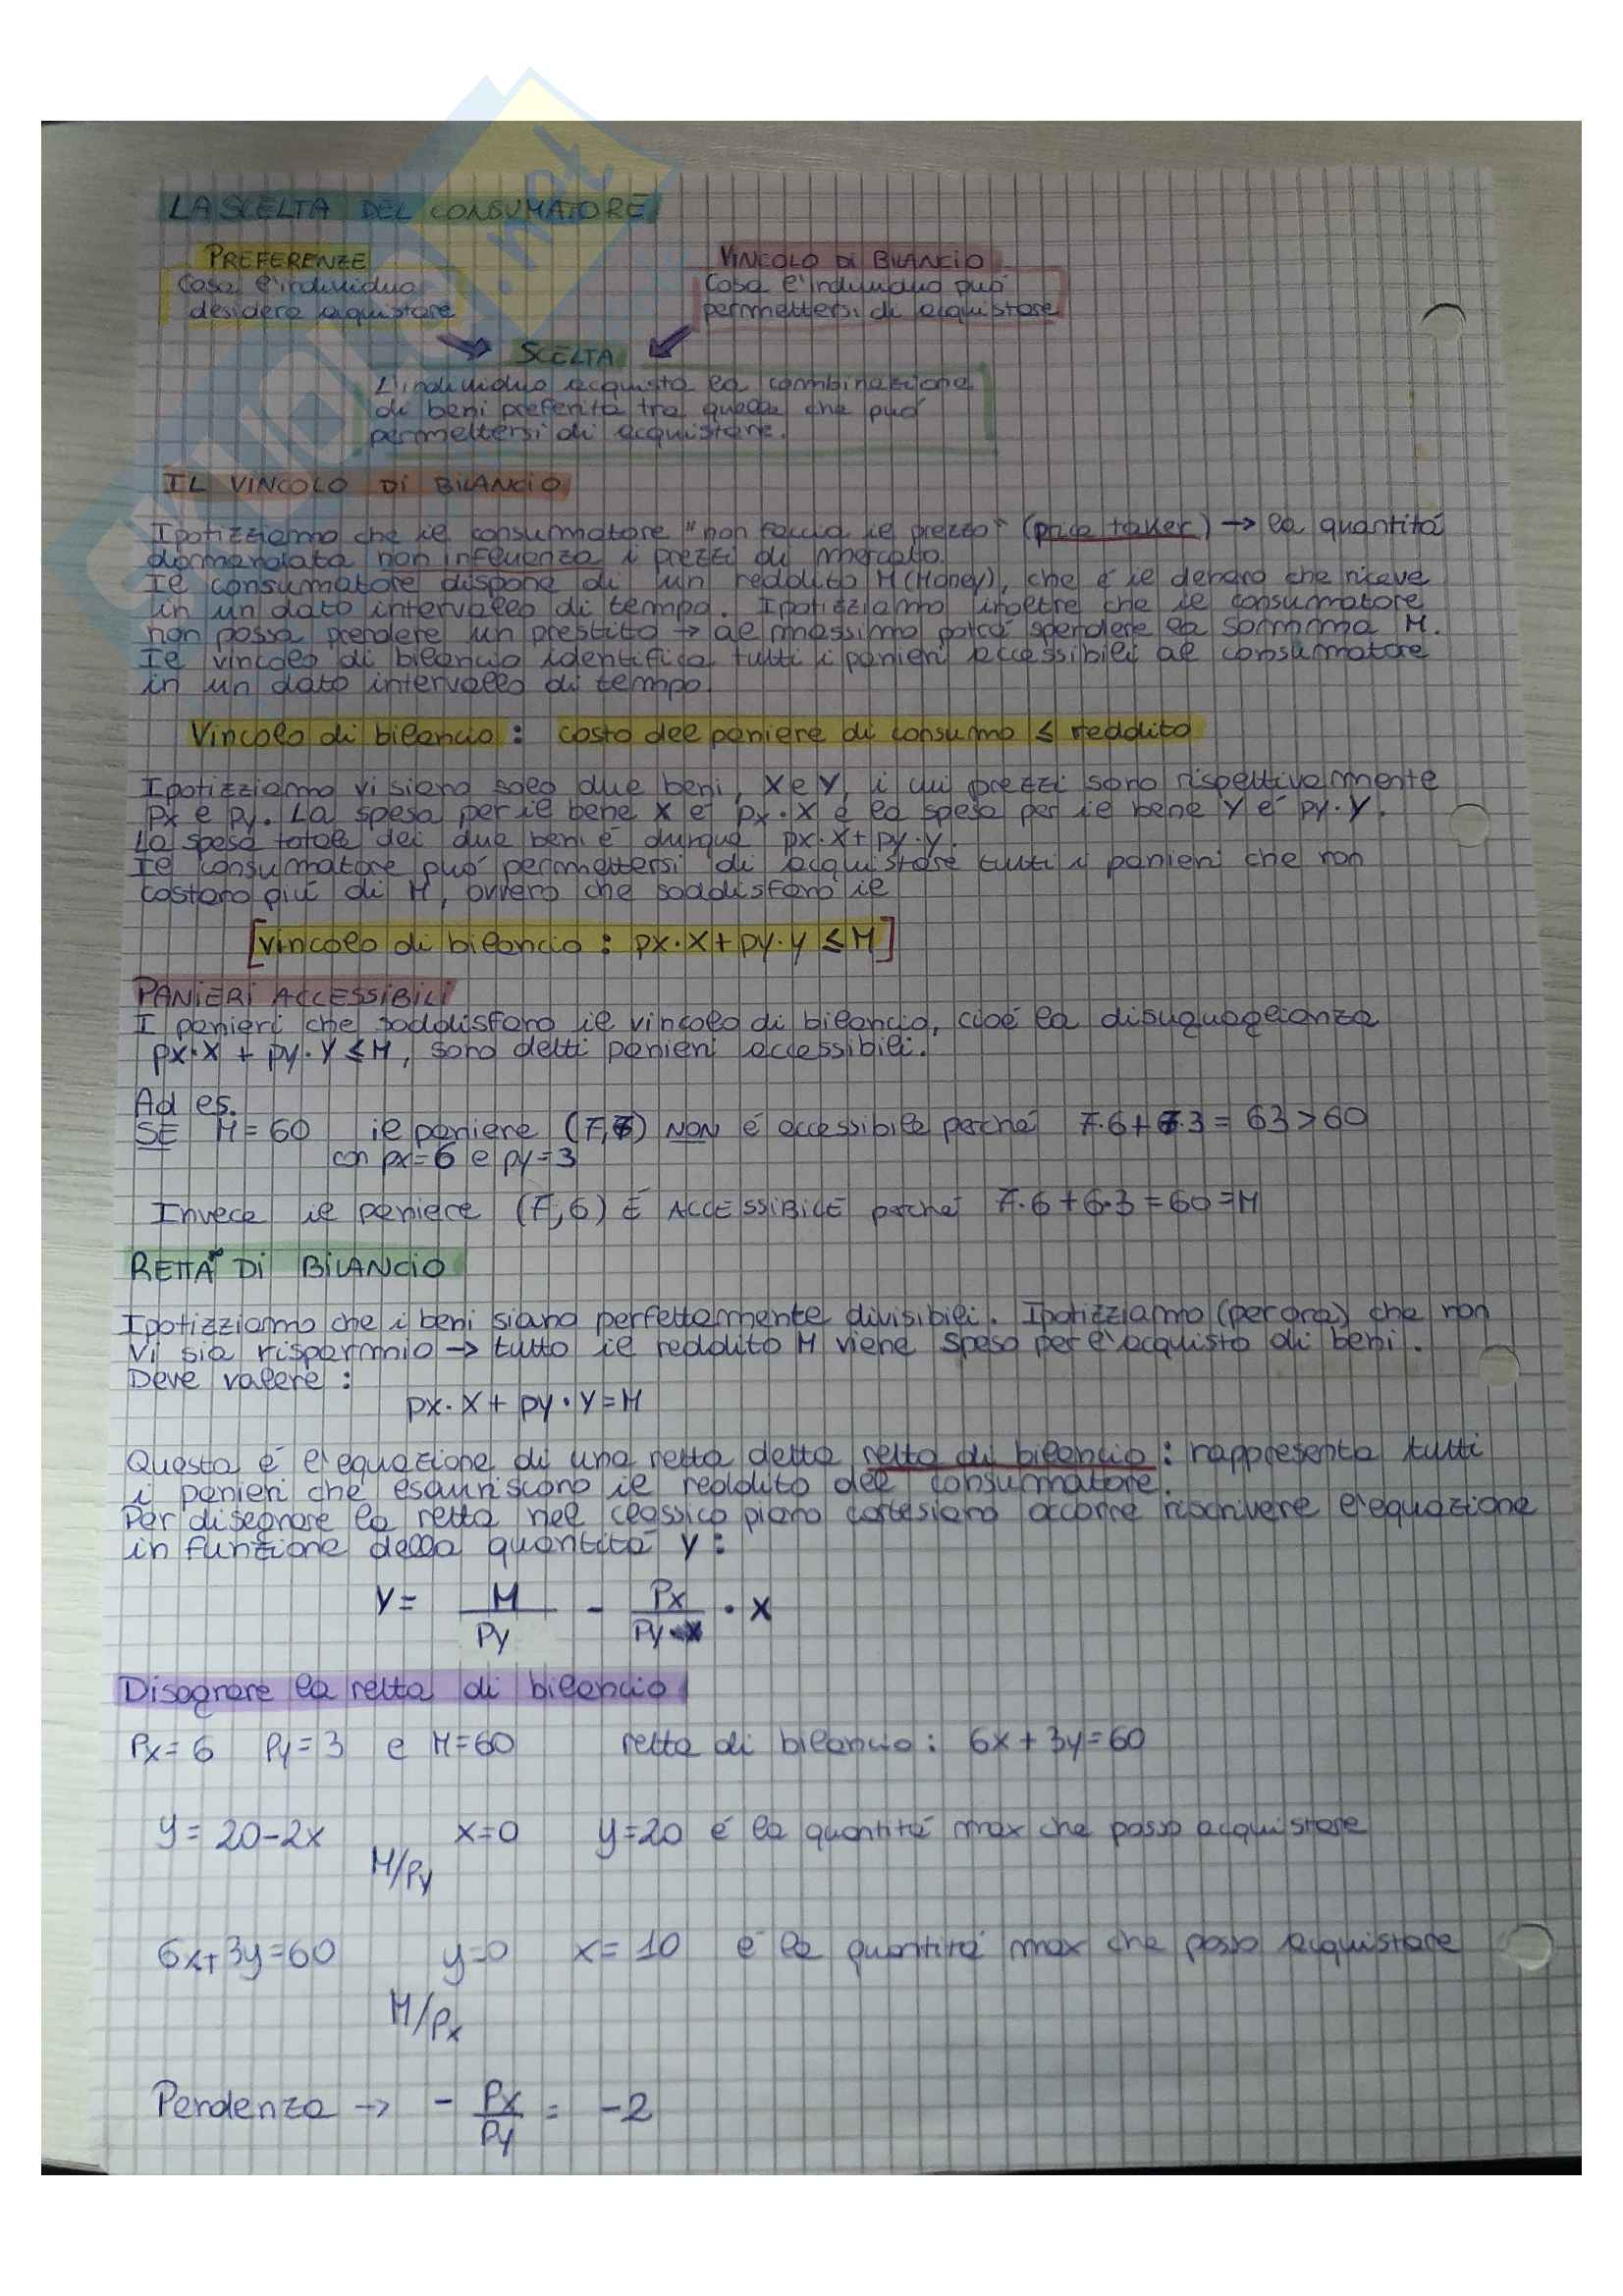 LA SCELTA DEL CONSUMATORE
PREFERENZE
Cosa l'individuo
desidera acquistare
VINCOLO DI BILANCIO
Cosa l'individuo può
permettersi di acquistare
SCELTA
L'individuo acquista la combinazione
di beni preferita tra quelle che può
permettersi di acquistare.
IL VINCOLO DI BILANCIO
Ipotizziamo che il consumatore "non faccia il prezzo" (price taker) → la quantità
domandata non influenza i prezzi di mercato.
Il consumatore dispone di un reddito M (Money), che è il denaro che riceve
in un dato intervallo di tempo. Ipotizziamo inoltre che il consumatore
non possa prendere un prestito → al massimo potrà spendere la somma M.
Il vincolo di bilancio identifica tutti i panieri accessibili al consumatore
in un dato intervallo di tempo
Vincolo di bilancio: costo del paniere di consumo ≤ reddito
Ipotizziamo vi siano solo due beni, X e Y, i cui prezzi sono rispettivamente
Px e Py. La spesa per il bene X è px·X e la spesa per il bene Y è py·Y.
La spesa totale dei due beni è dunque px·X+py·y.
Il consumatore può permettersi di acquistare tutti i panieri che non
costano più di M, ovvero che soddisfano il
[vincolo di bilancio: px·X+py·y ≤M]
PANIERI ACCESSIBILI
I panieri che soddisfano il vincolo di bilancio, cioè la disuguaglianza
px·X + py·Y ≤M, sono detti panieri accessibili.
Ad es.
SE M=60 il paniere (7,7) NON è accessibile perché 7·6+7·3=63>60
con px=6 e py=3
Invece il paniere (7,6) È ACCESSIBILE perché 7·6+6·3=60=M
RETTA DI BILANCIO
Ipotizziamo che i beni siano perfettamente divisibili. Ipotizziamo (per ora) che non
vi sia risparmio → tutto il reddito M viene speso per l'acquisto di beni.
Deve valere:
px·X+py·Y=M
Questa è l'equazione di una retta detta retta di bilancio: rappresenta tutti
i panieri che esauriscono il reddito del consumatore.
Per disegnare la retta nel classico piano cartesiano occorre riscrivere l'equazione
in funzione della quantità y:
Y= M/Py - Px/Py · X
Disegnare la retta di bilancio
Px=6 Py=3 e M=60 retta di bilancio: 6x+3y=60
y=20-2x x=0 y=20 è la quantità max che posso acquistare
M/Py
6x+3y=60 y=0 x=10 è la quantità max che posso acquistare
M/Px
Pendenza → - Px/Py = -2